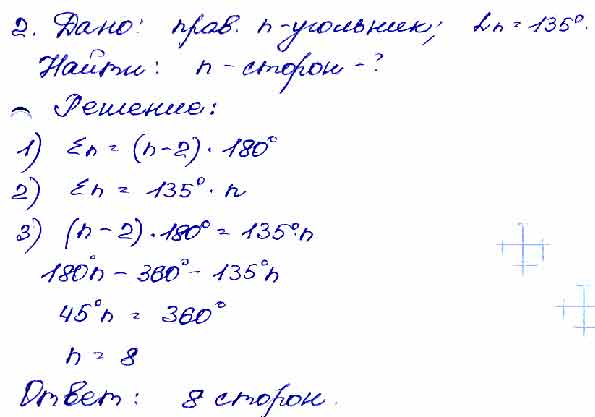 2. Дано: прав. n-угольник; ∠n = 135°.
Найти: n - сторон - ?
Решение:
1) Σn = (n-2) · 180°
2) Σn = 135° · n
3) (n-2) · 180° = 135° · n
180°n - 360° - 135°n
45°n = 360°
n = 8
Ответ: 8 сторон.